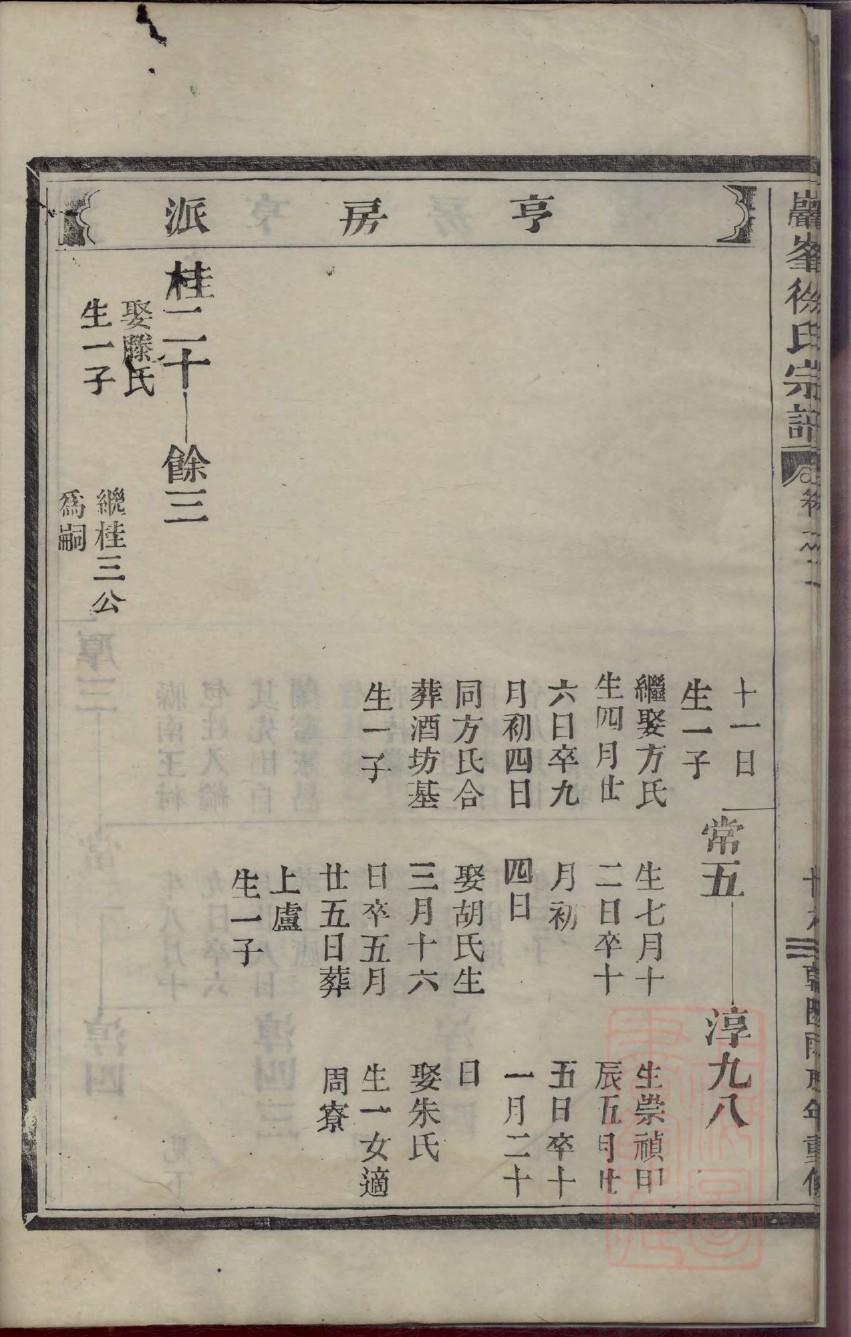 巖峯徐氏宗譜
亨房派
十一日
生一子
繼娶方氏
生四月廿
六日卒九
月初四日
同方氏合
葬酒坊基
生一子
常五
生七月十
二日卒十
月初
四日
娶胡氏生
三月十六
日卒五月
廿五日葬
上盧
生一子
淳九八
生崇禎
辰五月廿
五日卒十
一月二十
日
娶朱氏
生一女適
周寮
桂二十
娶滕氏
生一子
餘三
繼桂三公
爲嗣